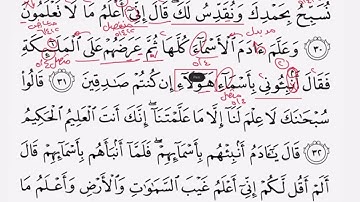 نُسَبِّحُ بِحَمْدِكَ وَنُقَدِّسُ لَكَ ۖ قَالَ إِنِّي أَعْلَمُ مَا لَا تَعْلَمُونَ
٣٠ وَعَلَّمَ ءَادَمَ الْأَسْمَاءَ كُلَّهَا ثُمَّ عَرَضَهُمْ عَلَى الْمَلَٰٓئِكَةِ
فَقَالَ أَنۢبِـُٔونِي بِأَسْمَاءِ هَٰٓؤُلَاءِ إِن كُنتُمْ صَٰدِقِينَ ٣١ قَالُوا
سُبْحَٰنَكَ لَا عِلْمَ لَنَا إِلَّا مَا عَلَّمْتَنَا ۖ إِنَّكَ أَنتَ الْعَلِيمُ الْحَكِيمُ
٣٢ قَالَ يَٰٓـَٔادَمُ أَنۢبِئْهُم بِأَسْمَائِهِمْ ۖ فَلَمَّا أَنۢبَأَهُم بِأَسْمَائِهِمْ قَالَ
أَلَمْ أَقُل لَّكُمْ إِنِّي أَعْلَمُ غَيْبَ السَّمَٰوَٰتِ وَالْأَرْضِ وَأَعْلَمُ مَا